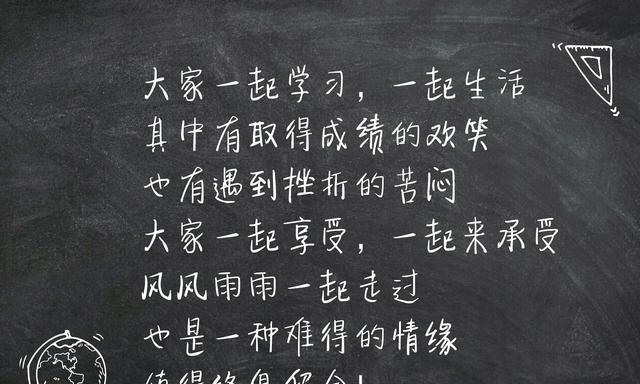 大家一起学习，一起生活
其中有取得成绩的欢笑
也有遇到挫折的苦闷
大家一起享受，一起来承受
风风雨雨一起走过
也是一种难得的情缘